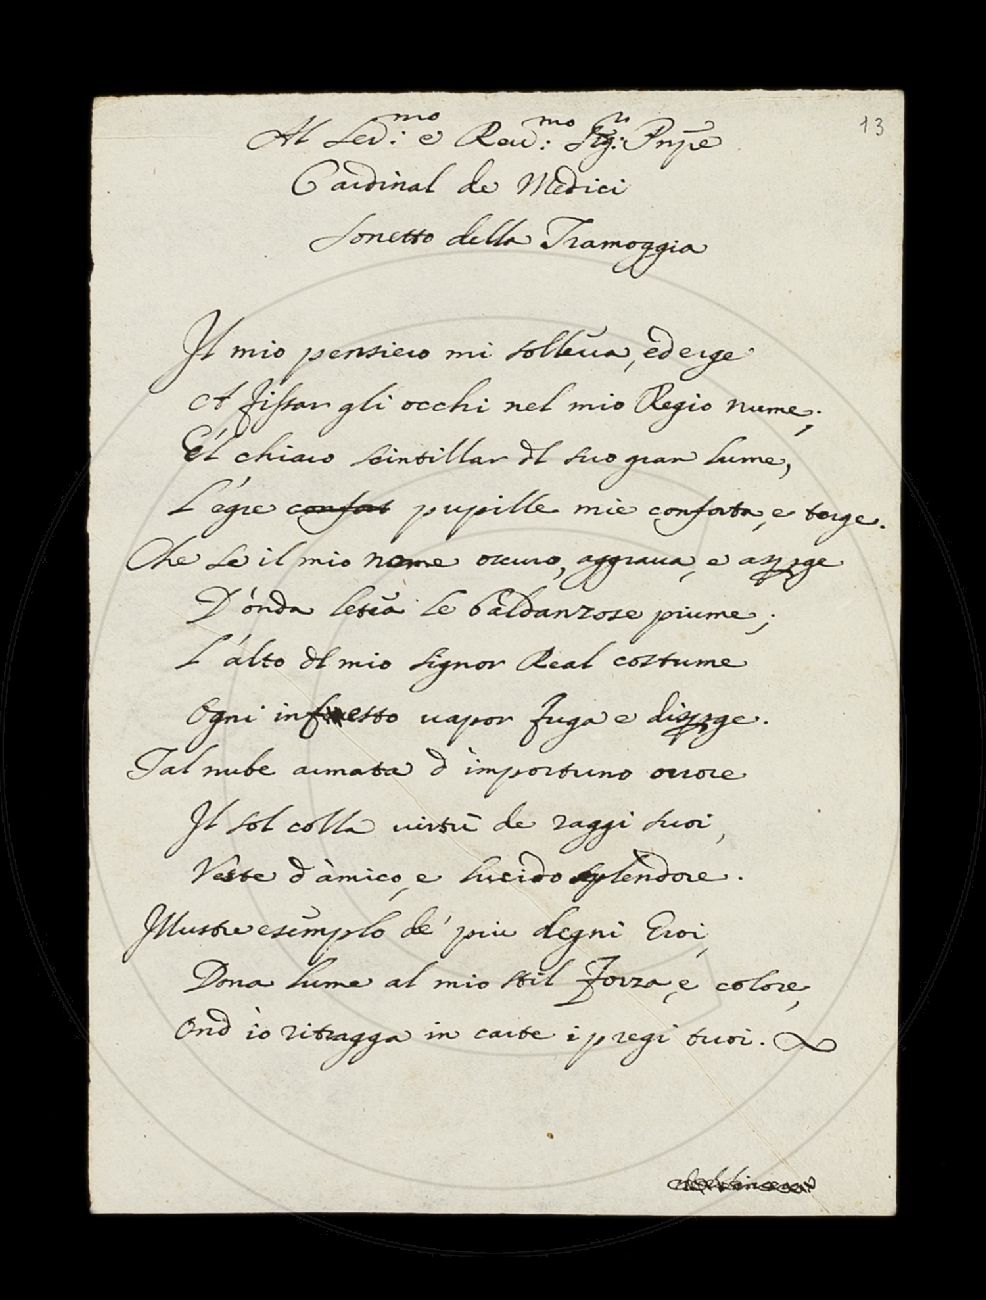 13
Al Ser.mo e Reu.mo Sig.r Prīpe
Cardinal de Medici
Sonetto della Tramoggia
Il mio pensiero mi solleua, ed erge
A fissar gli occhi nel mio Regio nume;
E'l chiaro scintillar dl suo gran lume,
L'égre confort pupille mie conforta, e terge.
Che se il mio nome oscuro, aggraua, e asperge
D'ónda letea le baldanzose piume;
L'álto dl mio signor Real costume
Ogni infesto uapor fuga e disperge.
Tal nube armata d'importuno orrore
Il sol colla uirtù de raggi suoi,
Veste d'àmico, e lucido splendore.
Illustre esemplo dé più degni Eroi,
Dona lume al mio stil forza, e colore,
Ond'io ritragga in carte i pregi tuoi.